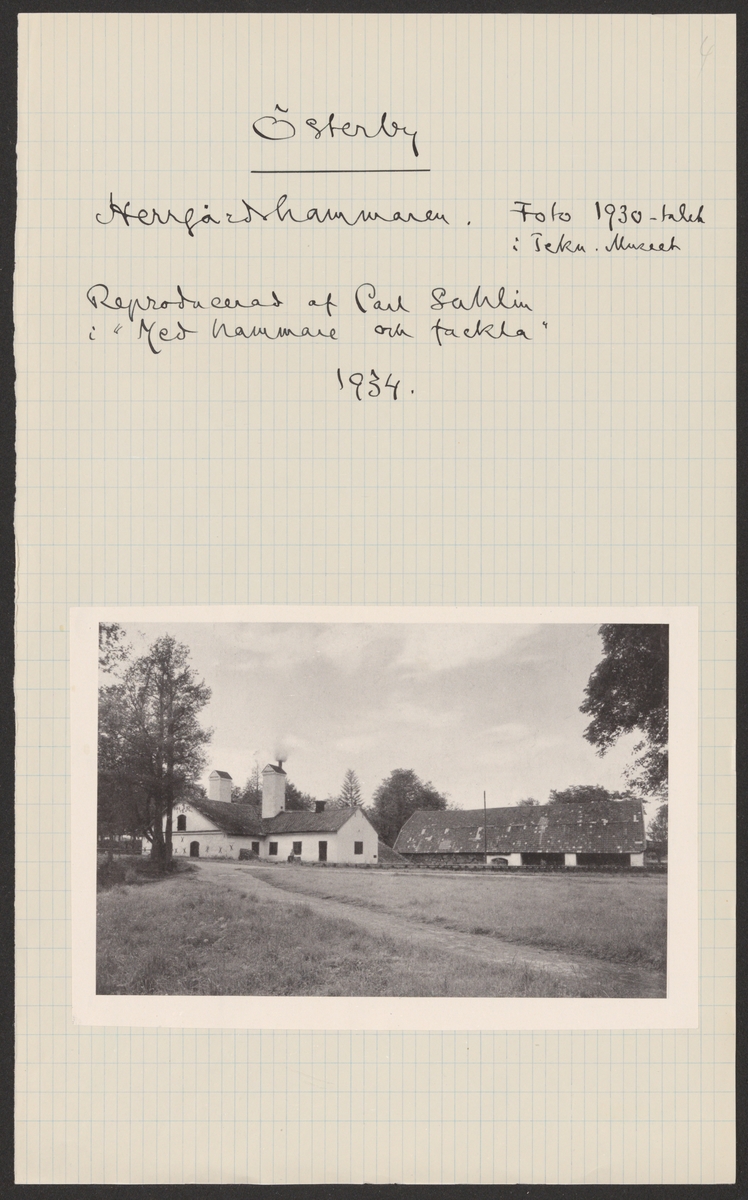 4
Österby
Herrgårdshammaren. Foto 1930-talet
i Tekn. Museet
Reproducerad af Carl Sahlin
i "Med hammare och fackla"
1934.